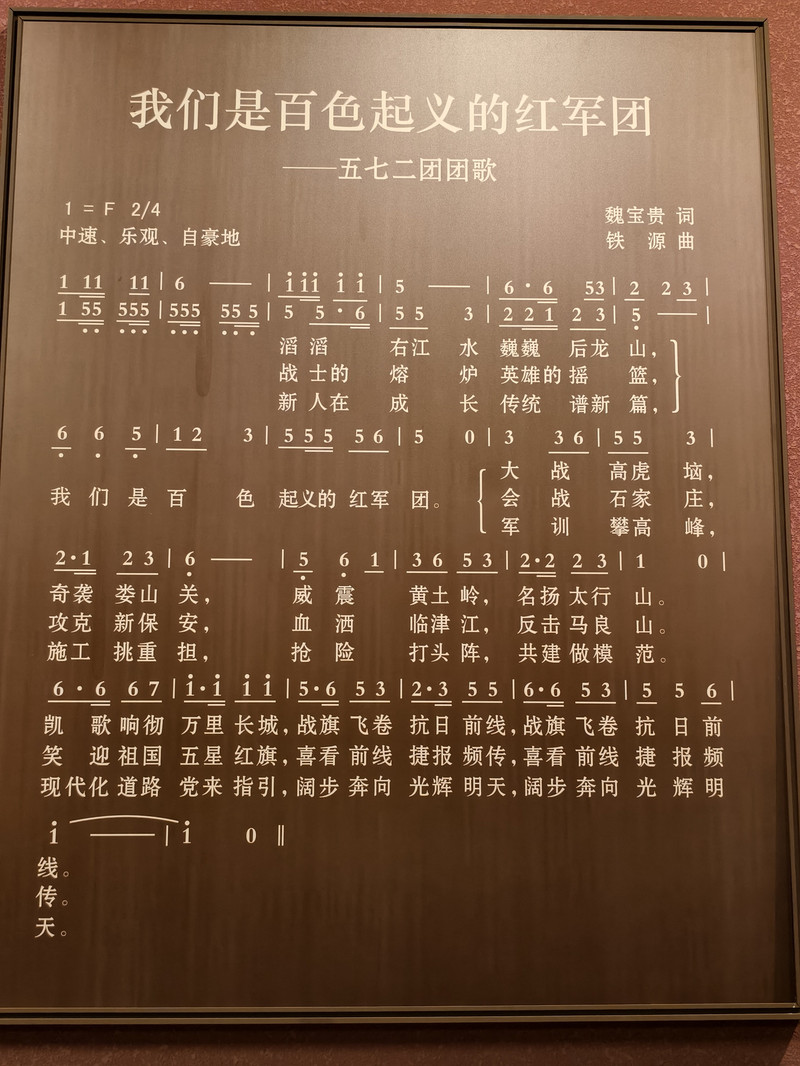 我们是百色起义的红军团
——五七二团团歌
1 = F 2/4
魏宝贵 词
中速、乐观、自豪地
铁 源 曲
1 11 11 | 6 — | i iii i i | 5 — | 6 · 6 53 | 2 2 3 |
1 55 555 | 555 55 5 | 5 5 · 6 | 5 5 3 | 2 21 2 3 | 5 — |
滔 滔 右江 水 巍巍 后龙 山,
战 士的 熔 炉 英雄的 摇 篮,
新 人在 成 长 传统 谱新 篇,
6 6 5 | 1 2 3 | 5 55 5 6 | 5 0 | 3 3 6 | 5 5 3 |
大 战 高虎 垴,
我 们 是 百 色 起义的 红军 团。 会 战 石家 庄,
军 训 攀高 峰,
2·1 2 3 | 6 — | 5 6 1 | 3 6 5 3 | 2·2 2 3 | 1 0 |
奇袭 娄山 关, 威 震 黄土 岭, 名扬 太行 山。
攻克 新保 安, 血 洒 临津 江, 反击 马良 山。
施工 挑重 担, 抢 险 打头 阵, 共建 做模 范。
6 · 6 6 7 | i·i i i | 5·6 5 3 | 2·3 5 5 | 6·6 5 3 | 5 5 6 |
凯 歌 响彻 万里 长城, 战旗 飞卷 抗日 前线, 战旗 飞卷 抗 日 前
笑 迎 祖国 五星 红旗, 喜看 前线 捷报 频传, 喜看 前线 捷 报 频
现代化 道路 党来 指引, 阔步 奔向 光辉 明天, 阔步 奔向 光 辉 明
i — | i 0 ‖
线。
传。
天。